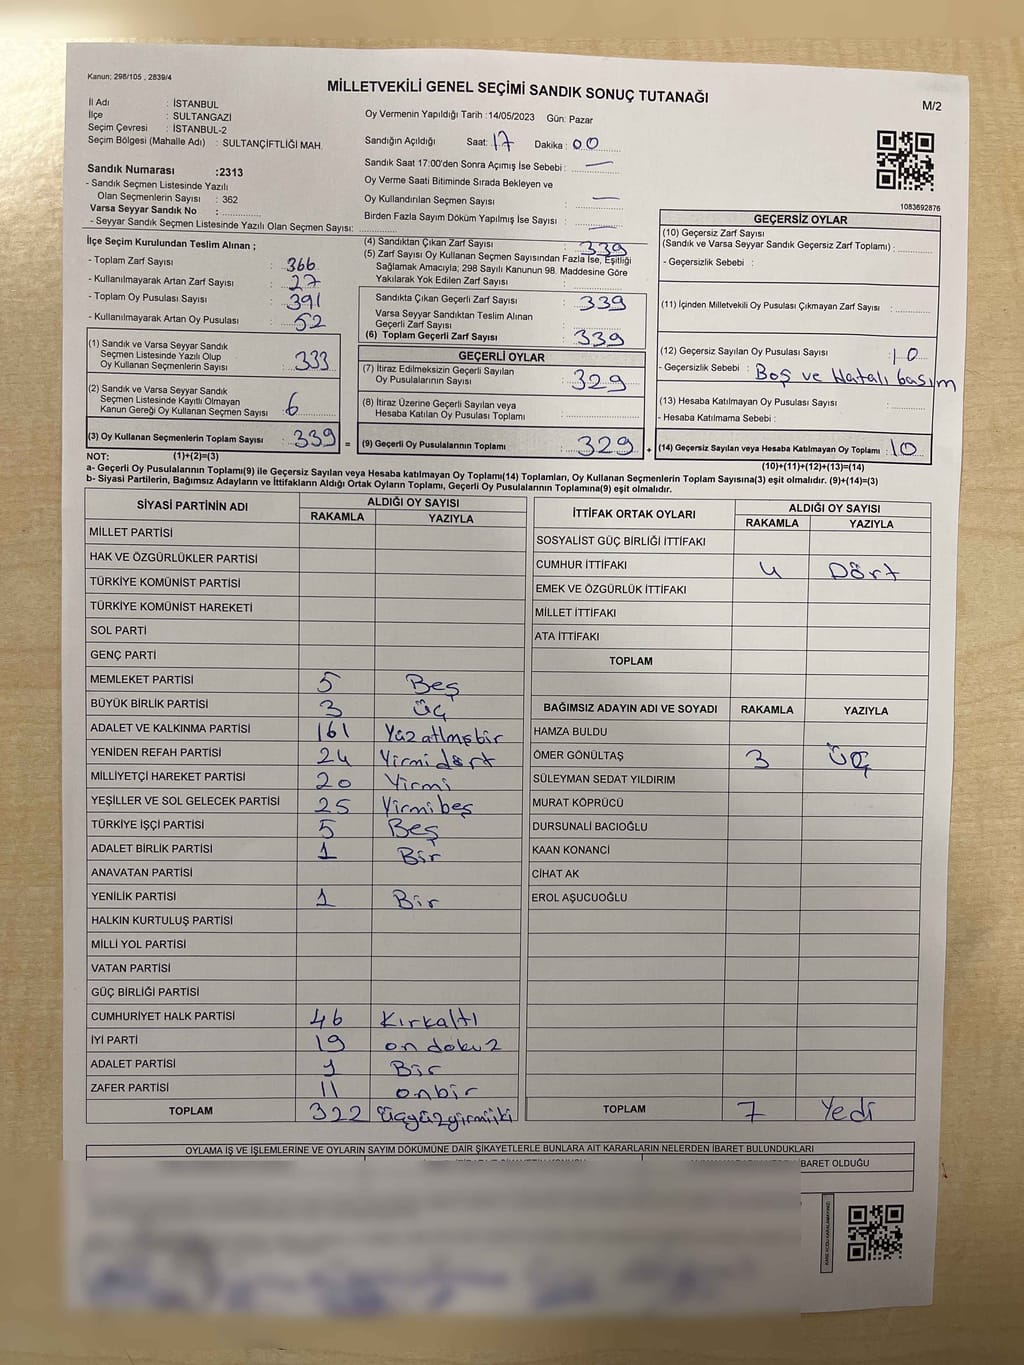 Kanun: 298/105 , 2839/4
MİLLETVEKİLİ GENEL SEÇİMİ SANDIK SONUÇ TUTANAĞI
M/2
İl Adı : İSTANBUL
İlçe : SULTANGAZI
Seçim Çevresi : İSTANBUL-2
Seçim Bölgesi (Mahalle Adı) : SULTANÇİFTLİĞİ MAH.
Sandık Numarası :2313
- Sandık Seçmen Listesinde Yazılı
Olan Seçmenlerin Sayısı : 362
Varsa Seyyar Sandık No :
- Seyyar Sandık Seçmen Listesinde Yazılı Olan Seçmen Sayısı:
Oy Vermenin Yapıldığı Tarih :14/05/2023 Gün: Pazar
Sandığın Açıldığı Saat: 17 Dakika : 00
Sandık Saat 17:00'den Sonra Açımış İse Sebebi : —
Oy Verme Saati Bitiminde Sırada Bekleyen ve
Oy Kullandırılan Seçmen Sayısı : —
Birden Fazla Sayım Döküm Yapılmış İse Sayısı :
1083692876
İlçe Seçim Kurulundan Teslim Alınan ;
- Toplam Zarf Sayısı : 366
- Kullanılmayarak Artan Zarf Sayısı : 27
- Toplam Oy Pusulası Sayısı : 391
- Kullanılmayarak Artan Oy Pusulası : 52
(1) Sandık ve Varsa Seyyar Sandık
Seçmen Listesinde Yazılı Olup
Oy Kullanan Seçmenlerin Sayısı : 333
(2) Sandık ve Varsa Seyyar Sandık
Seçmen Listesinde Kayıtlı Olmayan
Kanun Gereği Oy Kullanan Seçmen Sayısı : 6
(3) Oy Kullanan Seçmenlerin Toplam Sayısı : 339 =
(4) Sandıktan Çıkan Zarf Sayısı : 339
(5) Zarf Sayısı Oy Kullanan Seçmen Sayısından Fazla İse, Eşitliği
Sağlamak Amacıyla; 298 Sayılı Kanunun 98. Maddesine Göre
Yakılarak Yok Edilen Zarf Sayısı :
Sandıkta Çıkan Geçerli Zarf Sayısı : 339
Varsa Seyyar Sandıktan Teslim Alınan
Geçerli Zarf Sayısı :
(6) Toplam Geçerli Zarf Sayısı : 339
GEÇERLİ OYLAR
(7) İtiraz Edilmeksizin Geçerli Sayılan
Oy Pusulalarının Sayısı : 329
(8) İtiraz Üzerine Geçerli Sayılan veya
Hesaba Katılan Oy Pusulası Toplamı :
(9) Geçerli Oy Pusulalarının Toplamı : 329 +
GEÇERSİZ OYLAR
(10) Geçersiz Zarf Sayısı
(Sandık ve Varsa Seyyar Sandık Geçersiz Zarf Toplamı) :
- Geçersizlik Sebebi :
(11) İçinden Milletvekili Oy Pusulası Çıkmayan Zarf Sayısı :
(12) Geçersiz Sayılan Oy Pusulası Sayısı : 10
- Geçersizlik Sebebi : Boş ve Hatalı basım
(13) Hesaba Katılmayan Oy Pusulası Sayısı :
- Hesaba Katılmama Sebebi :
(14) Geçersiz Sayılan veya Hesaba Katılmayan Oy Toplamı : 10
NOT: (1)+(2)=(3)
(10)+(11)+(12)+(13)=(14)
a- Geçerli Oy Pusulalarının Toplamı(9) ile Geçersiz Sayılan veya Hesaba katılmayan Oy Toplamı(14) Toplamları, Oy Kullanan Seçmenlerin Toplam Sayısına(3) eşit olmalıdır. (9)+(14)=(3)
b- Siyasi Partilerin, Bağımsız Adayların ve İttifakların Aldığı Ortak Oyların Toplamı, Geçerli Oy Pusulalarının Toplamına(9) eşit olmalıdır.
SİYASİ PARTİNİN ADI ALDIĞI OY SAYISI
RAKAMLA YAZIYLA
MİLLET PARTİSİ
HAK VE ÖZGÜRLÜKLER PARTİSİ
TÜRKİYE KOMÜNİST PARTİSİ
TÜRKİYE KOMÜNİST HAREKETİ
SOL PARTİ
GENÇ PARTİ
MEMLEKET PARTİSİ 5 Beş
BÜYÜK BİRLİK PARTİSİ 3 üç
ADALET VE KALKINMA PARTİSİ 161 Yüzatlmşbir
YENİDEN REFAH PARTİSİ 24 Yirmidört
MİLLİYETÇİ HAREKET PARTİSİ 20 Yirmi
YEŞİLLER VE SOL GELECEK PARTİSİ 25 Yirmibeş
TÜRKİYE İŞÇİ PARTİSİ 5 Beş
ADALET BİRLİK PARTİSİ 1 Bir
ANAVATAN PARTİSİ
YENİLİK PARTİSİ 1 Bir
HALKIN KURTULUŞ PARTİSİ
MİLLİ YOL PARTİSİ
VATAN PARTİSİ
GÜÇ BİRLİĞİ PARTİSİ
CUMHURİYET HALK PARTİSİ 46 Kırkaltı
İYİ PARTİ 19 on dokuz
ADALET PARTİSİ 1 Bir
ZAFER PARTİSİ 11 onbir
TOPLAM 322 üçyüzyirmiiki
İTTİFAK ORTAK OYLARI ALDIĞI OY SAYISI
RAKAMLA YAZIYLA
SOSYALİST GÜÇ BİRLİĞİ İTTİFAKI
CUMHUR İTTİFAKI 4 Dört
EMEK VE ÖZGÜRLÜK İTTİFAKI
MİLLET İTTİFAKI
ATA İTTİFAKI
TOPLAM
BAĞIMSIZ ADAYIN ADI VE SOYADI RAKAMLA YAZIYLA
HAMZA BULDU
ÖMER GÖNÜLTAŞ 3 üç
SÜLEYMAN SEDAT YILDIRIM
MURAT KÖPRÜCÜ
DURSUNALİ BACIOĞLU
KAAN KONANCİ
CİHAT AK
EROL AŞUCUOĞLU
TOPLAM 7 Yedi
OYLAMA İŞ VE İŞLEMLERİNE VE OYLARIN SAYIM DÖKÜMÜNE DAİR ŞİKAYETLERLE BUNLARA AİT KARARLARIN NELERDEN İBARET BULUNDUKLARI
BARET OLDUĞU